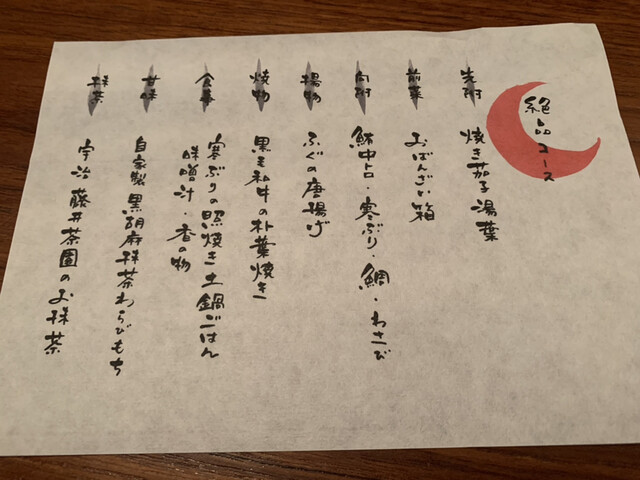 絶品コース
先附
焼き茄子湯葉
前菜
おばんざい箱
向附
鮪中トロ・寒ぶり・鯛・わさび
揚物
ふぐの唐揚げ
焼物
黒毛和牛の朴葉焼き
食事
寒ぶりの照焼き土鍋ごはん
味噌汁・香の物
甘味
自家製黒胡麻抹茶わらびもち
抹茶
宇治藤井茶園のお抹茶